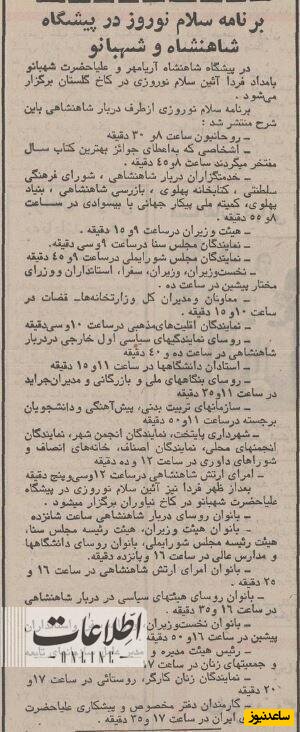 برنامه سلام نوروز در پیشگاه
شاهنشاه و شهبانو
در پیشگاه شاهنشاه آریامهر و علیاحضرت شهبانو
بامداد فردا آئین سلام نوروزی در کاخ گلستان برگزار
میشود.
برنامه سلام نوروزی ازطرف دربار شاهنشاهی باین
شرح منتشر شد:
ـ روحانیون ساعت ۸و ۳۰ دقیقه
ـ اشخاصی که به‌اعطای جوائز بهترین کتاب سال
مفتخر میگردند ساعت ۸و۴۵ دقیقه.
ـ خدمتگزاران دربار شاهنشاهی، شورای فرهنگی
سلطنتی، کتابخانه پهلوی، بازرسی شاهنشاهی، بنیاد
پهلوی، کمیته ملی پیکار جهانی با بیسوادی در ساعت
۸و ۵۵ دقیقه.
ـ هیئت وزیران درساعت ۹و ۱۵ دقیقه.
ـ نمایندگان مجلس سنا درساعت ۹وسی دقیقه.
ـ نمایندگان مجلس شورایملی درساعت ۹و ۴۵ دقیقه
ـ نخست‌وزیران، وزیران، سفرا، استانداران ووزرای
مختار پیشین در ساعت ده.
ـ معاونان ومدیران کل وزارتخانه‌هاـ قضات در
ساعت ۱۰و ۱۵ دقیقه.
ـ نمایندگان اقلیت‌های‌مذهبی درساعت ۱۰وسی‌دقیقه
ـ روسای نمایندگیهای سیاسی اول خارجی دردربار
شاهنشاهی در ساعت ده و ۴۰ دقیقه
ـ استادان دانشگاهها در ساعت ۱۱و ۱۵ دقیقه
ـ روسای بنگاههای ملی و بازرگانی و مدیران‌جراید
در ساعت ۱۱و۳۵ دقیقه
ـ سازمانهای تربیت بدنی، پیش‌آهنگی و دانشجویان
برجسته درساعت ۱۱و۵۰ دقیقه
ـ شهرداری پایتخت، نمایندگان انجمن شهر، نمایندگان
انجمنهای محلی، نمایندگان اصناف، خانه‌های انصاف و
شوراهای داوری در ساعت ۱۲ و ده دقیقه
ـ امرای ارتش شاهنشاهی درساعت ۱۲وسی‌وپنج دقیقه
بعداز ظهر فردا نیز آئین سلام نوروزی در پیشگاه
علیاحضرت شهبانو در کاخ نیاوران برگزار میشود.
ـ بانوان روسای دربار شاهنشاهی ساعت شانزده
ـ بانوان هیئت وزیران، هیئت رئیسه مجلس سنا،
هیئت رئیسه مجلس شورایملی، بانوان روسای دانشگاهها
و مدارس عالی در ساعت ۱۶ و پانزده دقیقه.
ـ بانوان امرای ارتش شاهنشاهی در ساعت ۱۶ و
۲۵ دقیقه.
ـ بانوان روسای هیئتهای سیاسی در دربار شاهنشاهی
در ساعت ۱۶ و ۳۵ دقیقه.
ـ بانوان نخست‌وزیران
پیشین در ساعت ۱۶و ۵۰ دقیقه
ـ رئیس هیئت مدیره و تابعه
و جمعیتهای زنان در ساعت ۱۷
ـ نمایندگان زنان کارگر، روستائی در ساعت ۱۷و
۲۰ دقیقه
ـ کارمندان دفتر مخصوص و پیشکاری علیاحضرت
ایران در ساعت ۱۷ و ۳۵ دقیقه.
اطلاعات
ONLINE
سعدنیوز